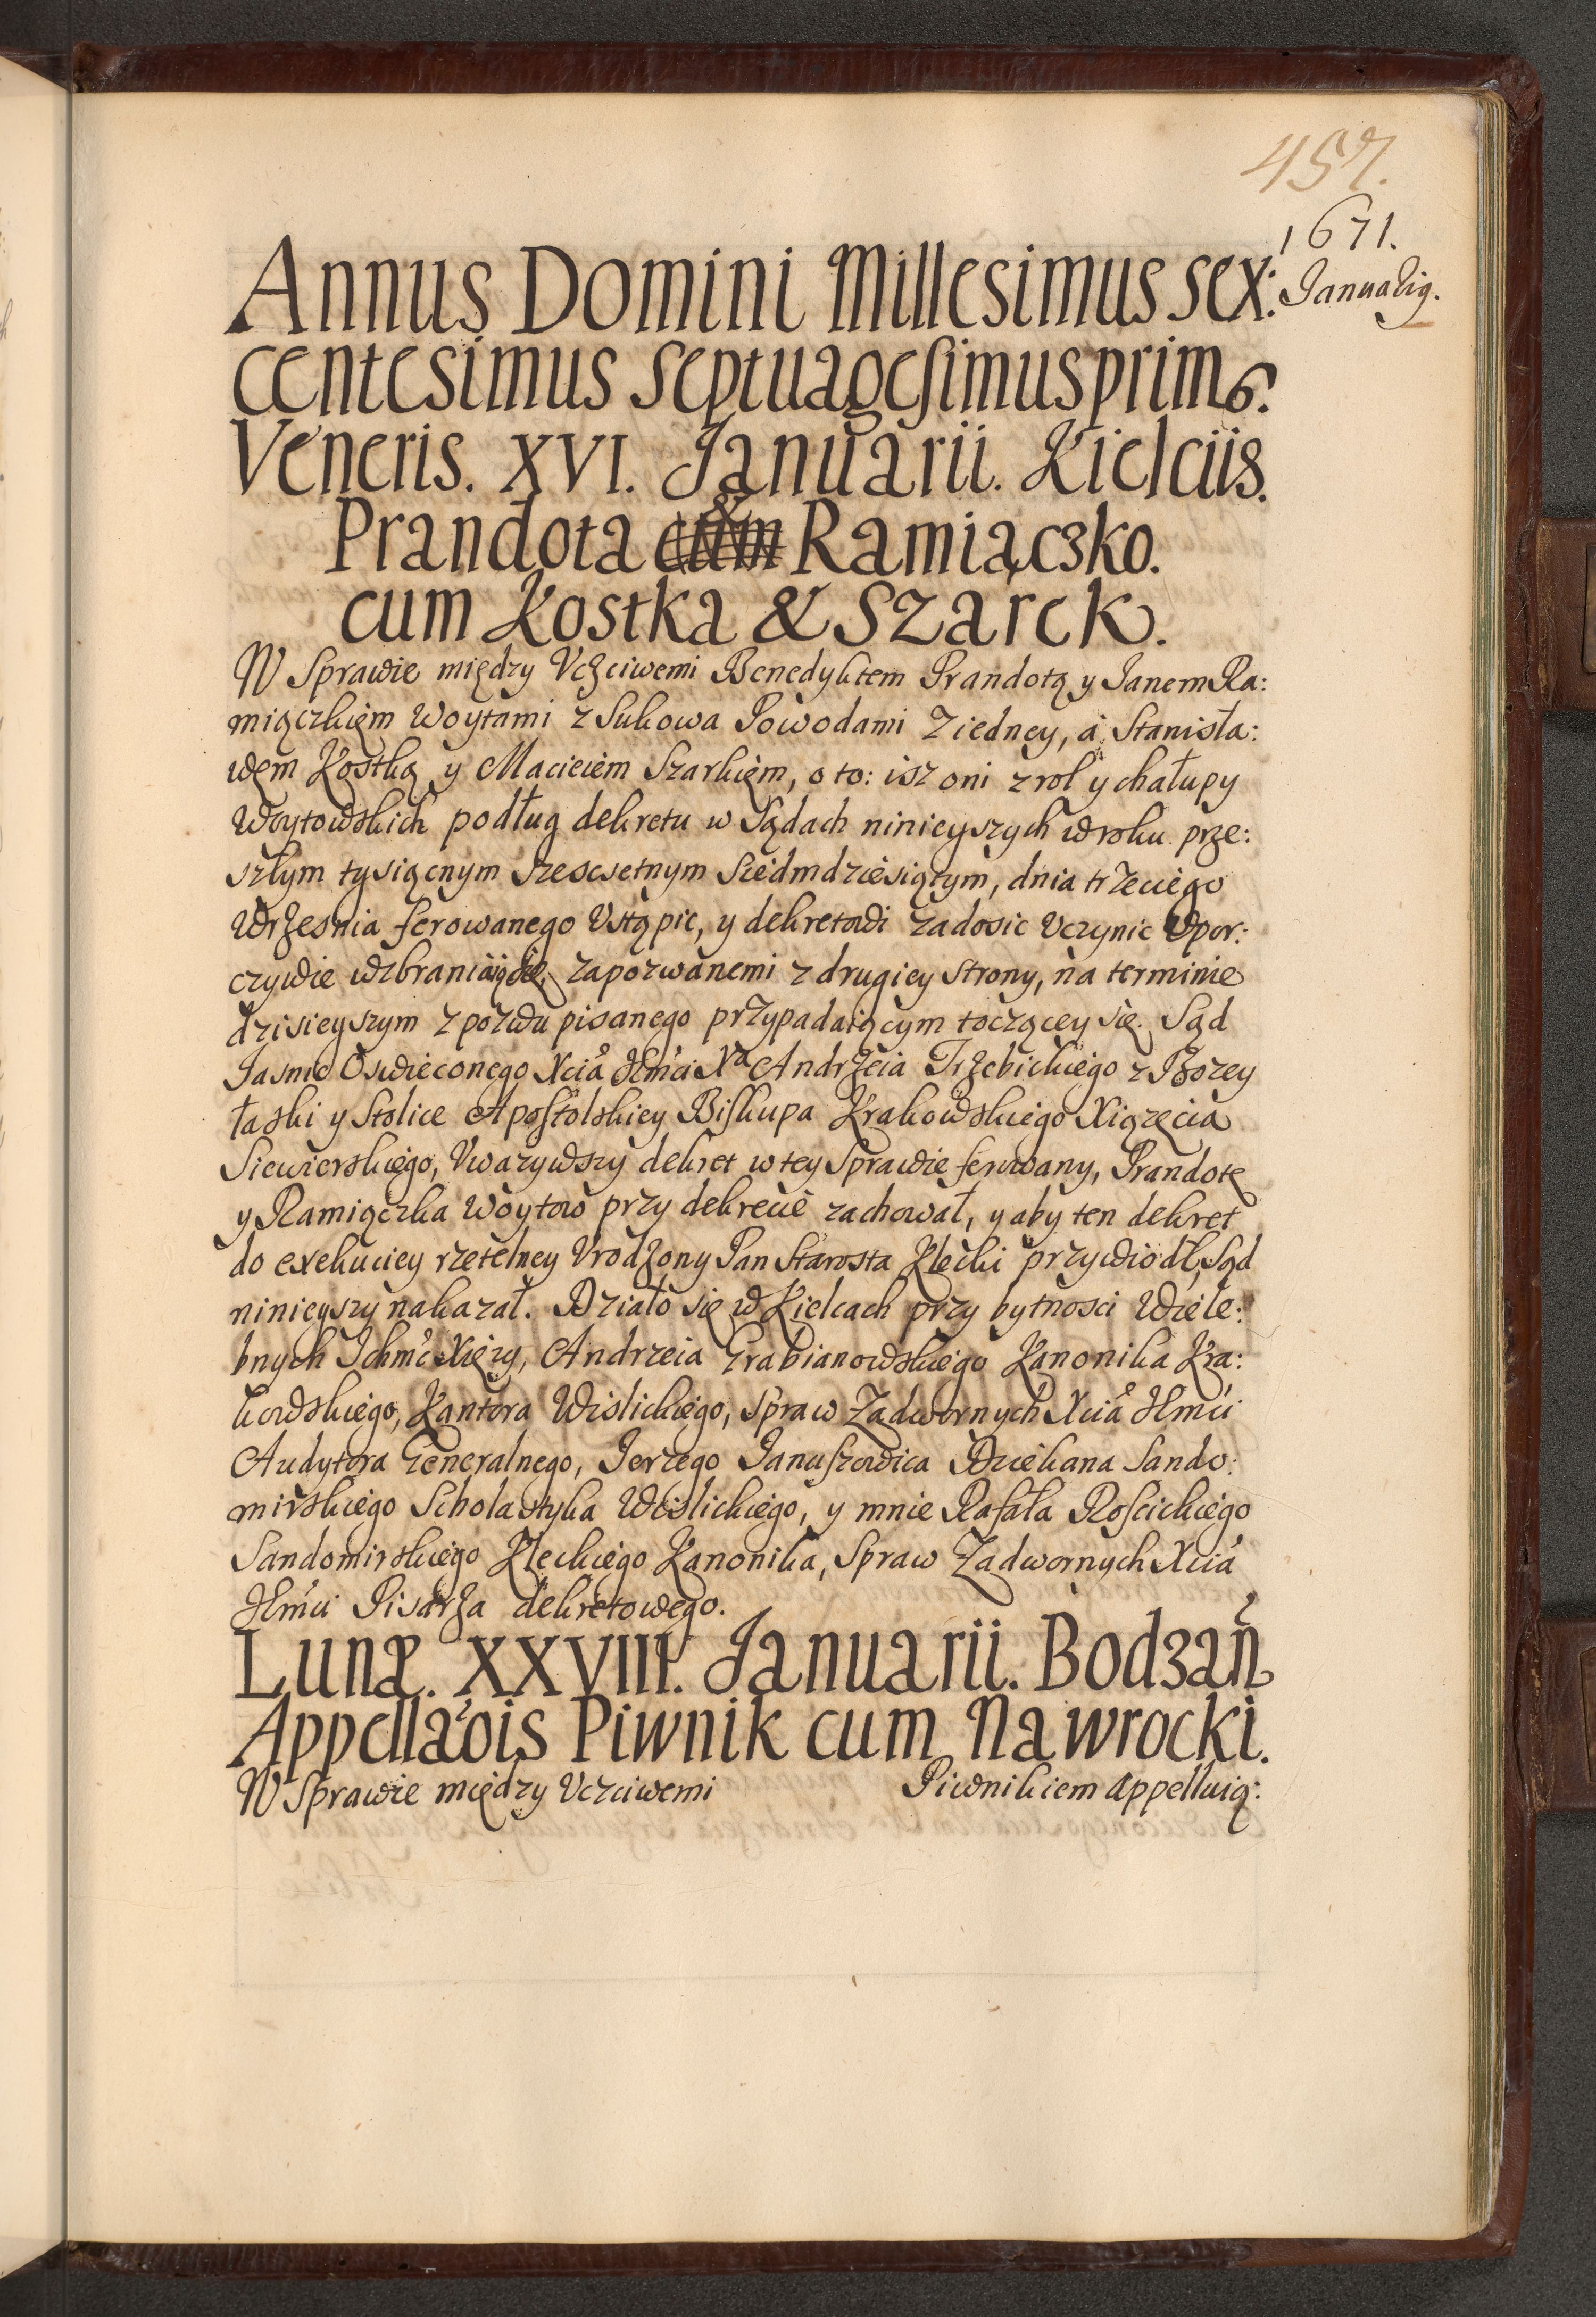 457.
1671.
Januarij.
Annus Domini Millesimus sex:
centesimus septuagesimus primus.
Veneris. XVI. Januarii. Kielciis.
&
Prandota cum Ramiączko.
cum Kostka & Szarek.
W Sprawie między Vczciwemi Benedyktem Prandotą y Janem Ra:
miączkiem Woytami z Sukowa Powodami z iedney, á Stanisła:
wem Kostką y Macieiem Szarkiem, o to: isz oni z rol y chałupy
Woytowskich podług dekretu w Sądach ninieyszych w roku prze:
szłym tysiącnym szescsetnym siedmdziesiątym, dnia trzeciego
Wrzesnia ferowanego Vstąpic, y dekretowi zadosic Vczynic Vpor:
czywie wzbraniaią się, zapozwanemi z drugiey strony, na terminie
dzisieyszym z pozwu pisanego przypadaiącym toczącey się. Sąd
Jasnie Oswieconego Xcia Jmci Xa Andrzeia Trzebickiego z Bozey
łaski y Stolice Apostolskiey Biskupa Krakowskiego Xiązęcia
Siewierskiego, Vwazywszy dekret w tey Sprawie ferowany, Prandotę
y Ramiączka Woytow przy dekrecie zachował, y aby ten dekret
do exekuciey rzetelney Vrodzony Pan Starosta Klecki przywiodł, Sąd
ninieyszy nakazał. Działo się w Kielcach przy bytnosci Wiele:
bnych Ichmc Xięzy, Andrzeia Grabianowskiego Kanonika Kra:
kowskiego, Kantora Wislickiego, spraw Zadwornych Xcia Jmci
Audytora Generalnego, Jerzego Januszowica Dziekana Sando:
mirskiego Scholastyka Wislickiego, y mnie Rafała Roscickiego
Sandomirskiego Kleckiego Kanonika, Spraw Zadwornych Xcia
Jmci Pisarza dekretowego.
Lunæ. XXVIII. Januarii. Bodzan
Appellaois Piwnik cum Nawrocki.
W Sprawie między Vczciwemi Piwnikiem appelluią: